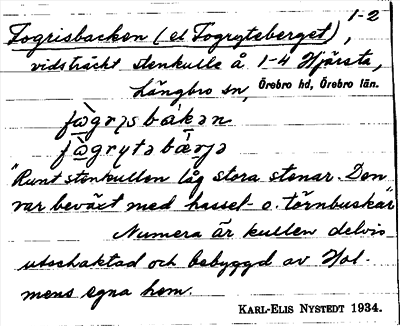 1-2
Fogrisbacken (el Fogryteberget),
vidsträckt stenkulle å 1-4 Hjärsta,
Längbro sn, Örebro hd, Örebro län.
"Runt stenkullen låg stora stenar. Den
var beväxt med hassel- o. törnbuskar"
Numera är kullen delvis
utschaktad och bebyggd av Hol-
mens egna hem.
KARL-ELIS NYSTEDT 1934.